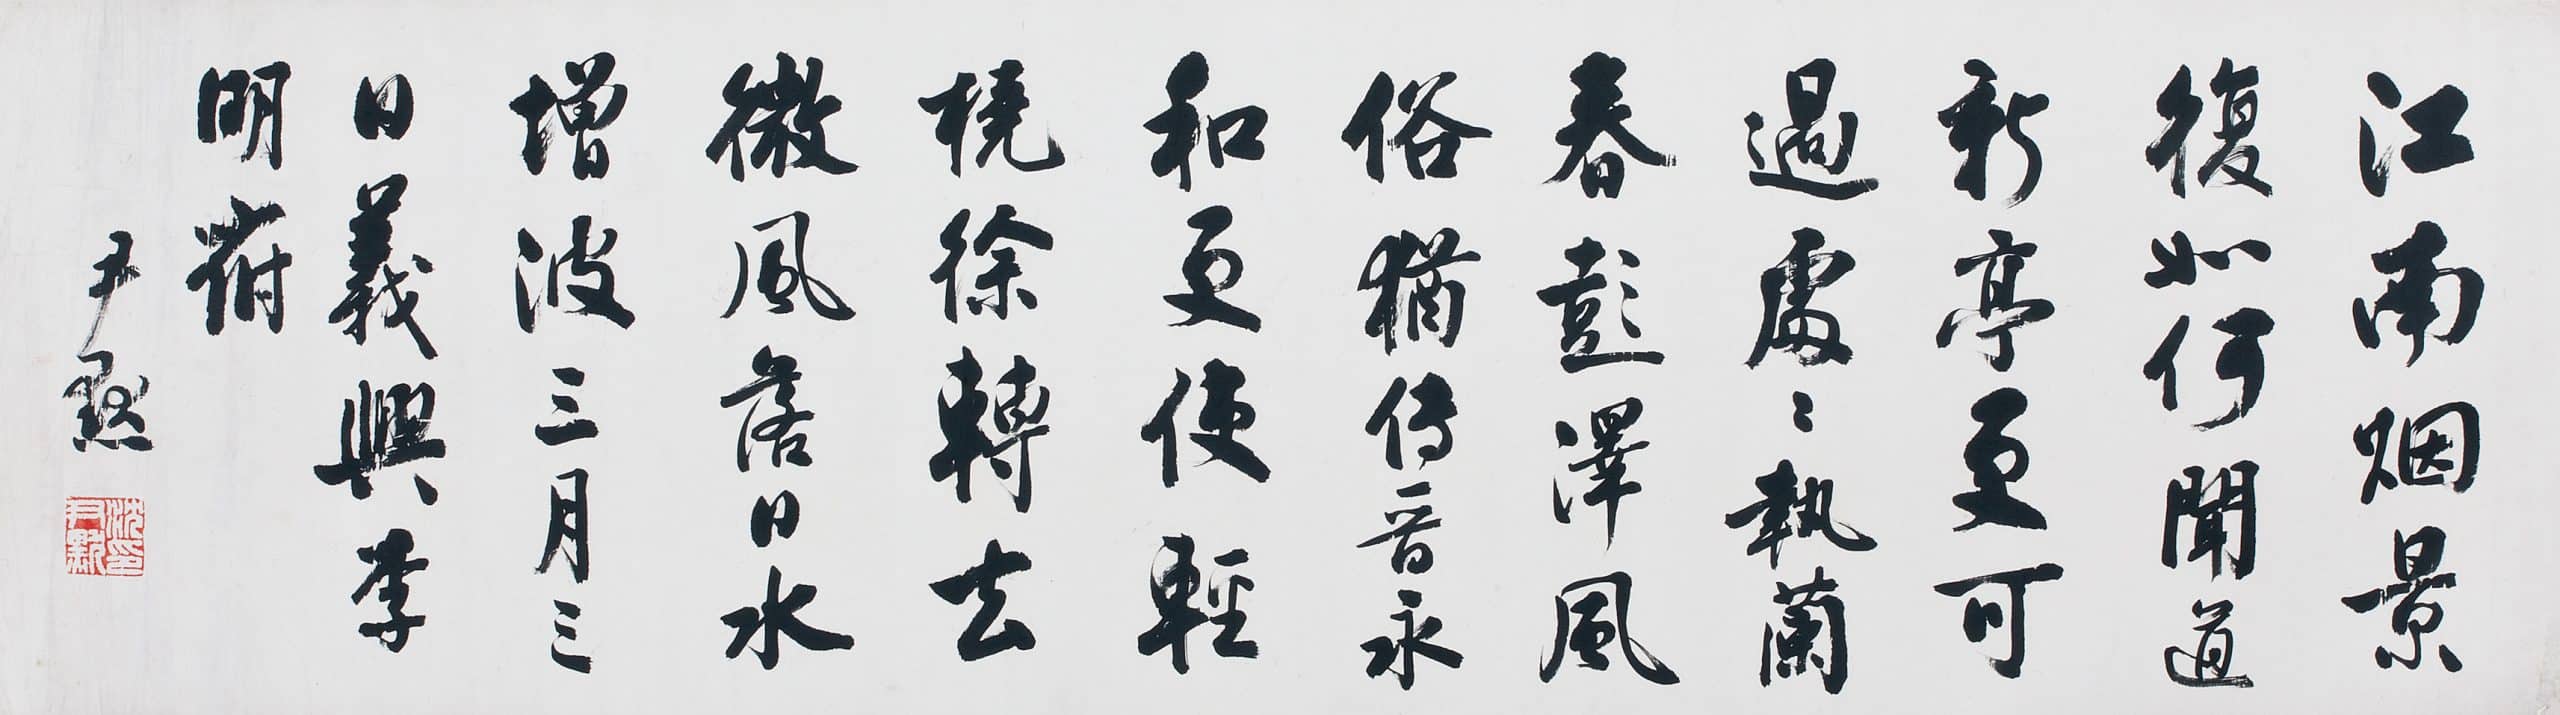 江南烟景
復如何聞道
新亭更可
過處〻執蘭
春彭澤風
俗猶传晉永
和更使輕
橈徐轉去
微風落日水
增波三月三
日義興李
明府
尹默
沈尹默印